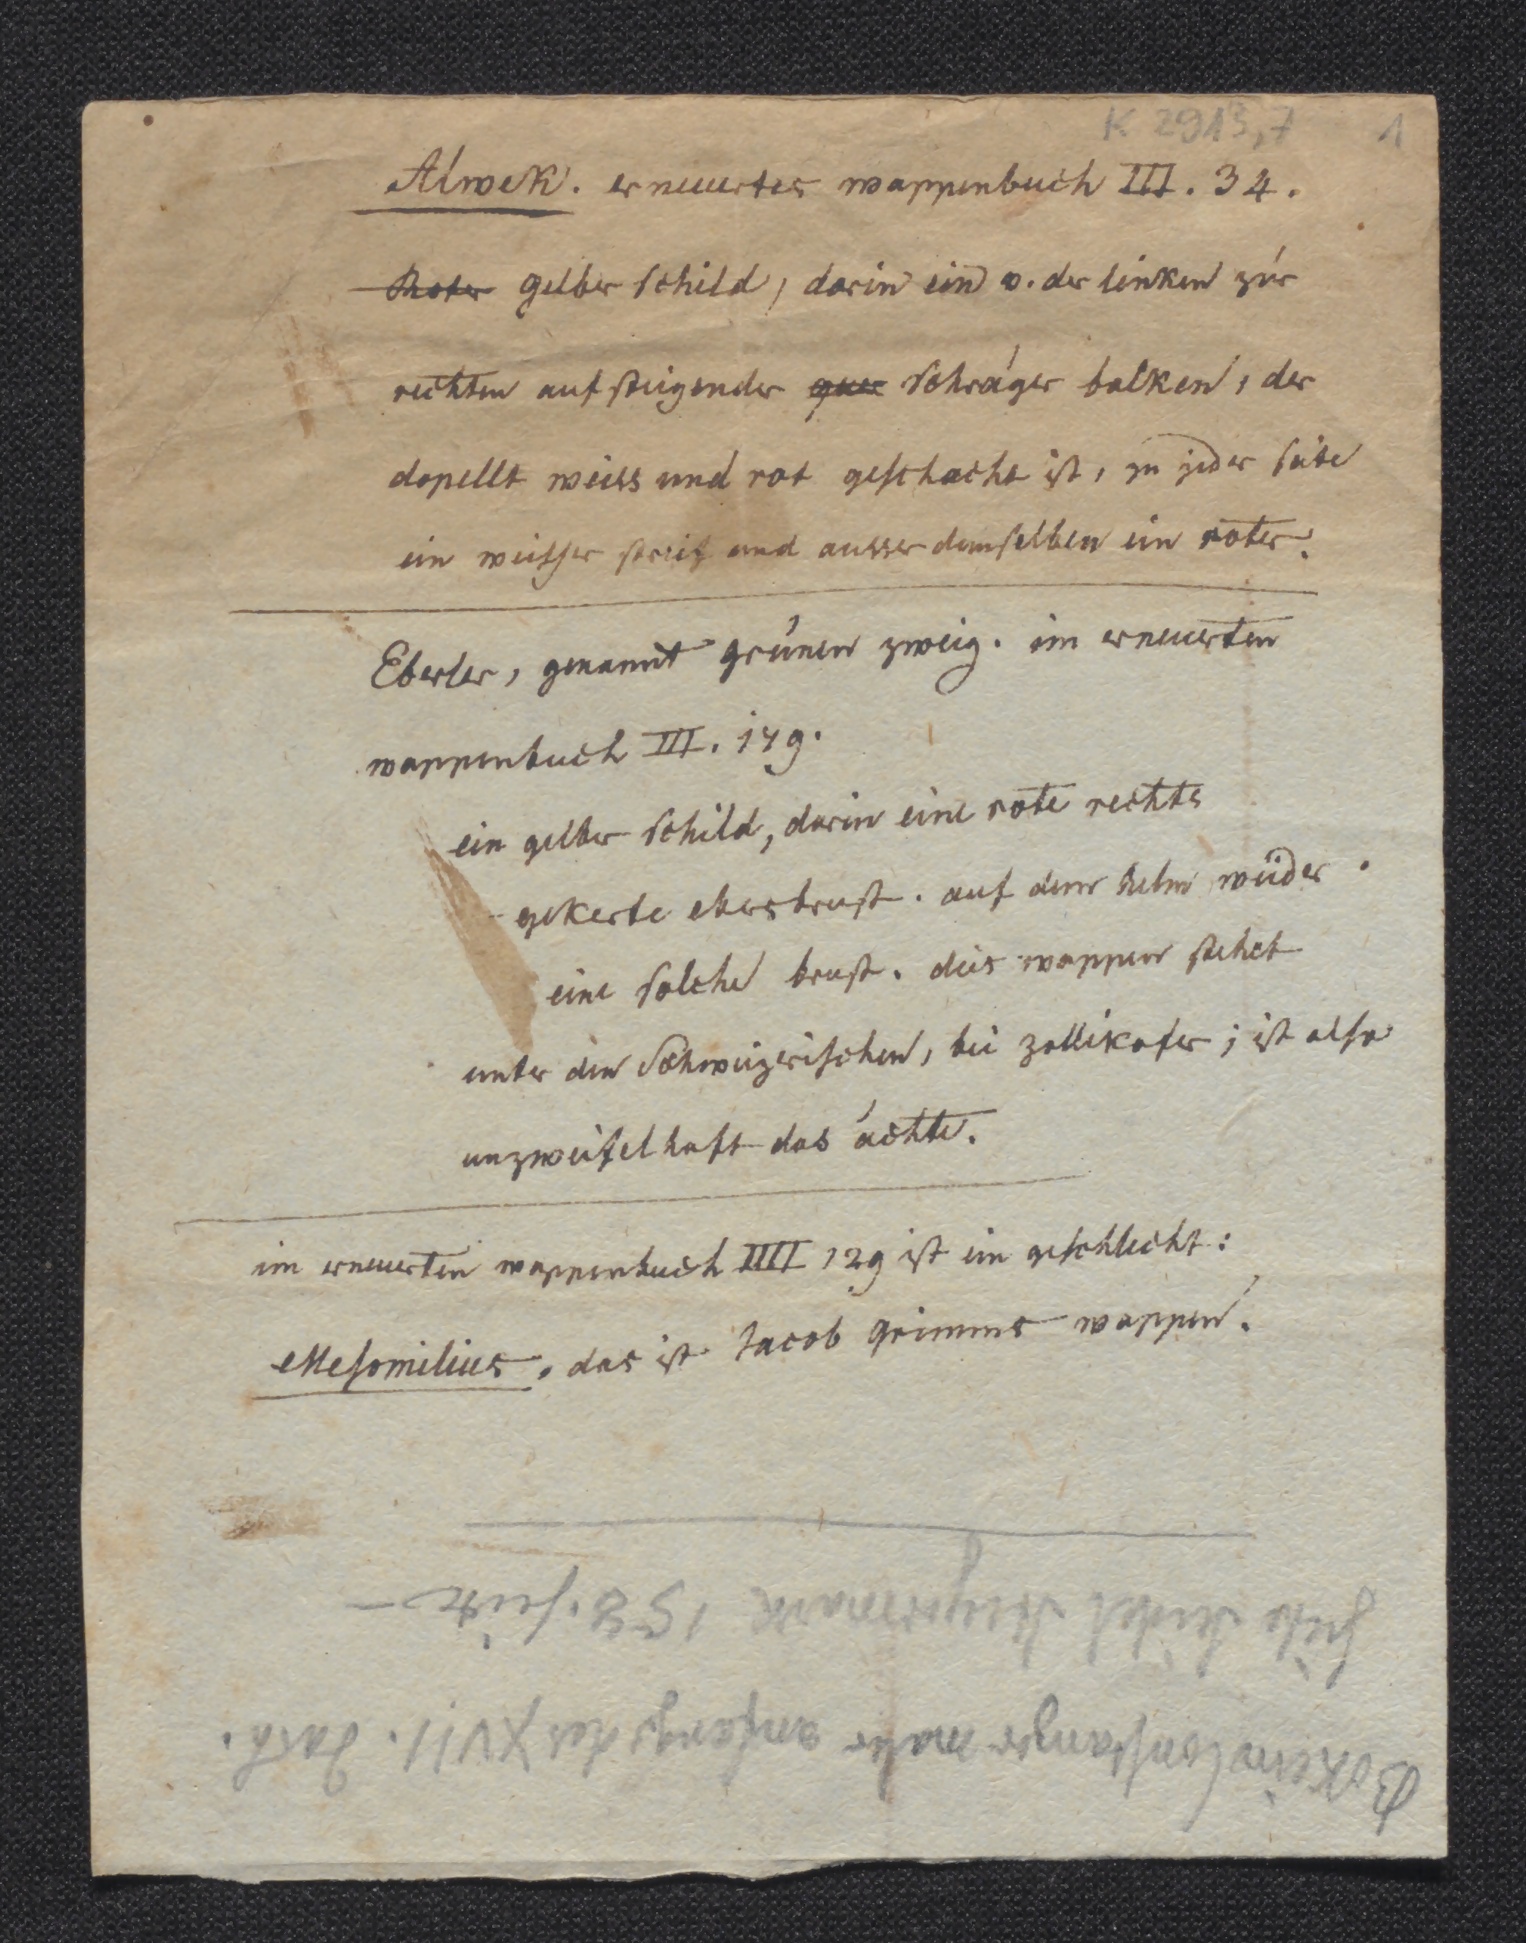 K 2913,7 1
Alwek. erneuertes wappenbuch III. 34.
Roter gelber schild, darin ein v. der linken zur
rechten aufsteigender quer schräger balken, der
dopellt weiss und rot geschacht ist, zu jeder seite
ein weisser streif und ausser demselben ein roter.
Eberler, genannt grünen zweig. im erneuerten
wappenbuch III. 179.
ein gelber schild, darin eine rote rechts
gekerte ebersbrust. auf dem helm wider
eine solche brust. dies wappen stehet
unter den Schweizerischen, bei zollikofer; ist also
unzweifelhaft das ächte.
im erneuerten wappenbuch IIII 129 ist ein geschlecht:
Mesomilius. das ist Jacob grimms wappen.
Constanzer maler anfangs des XVII. Jarh.
158. seite